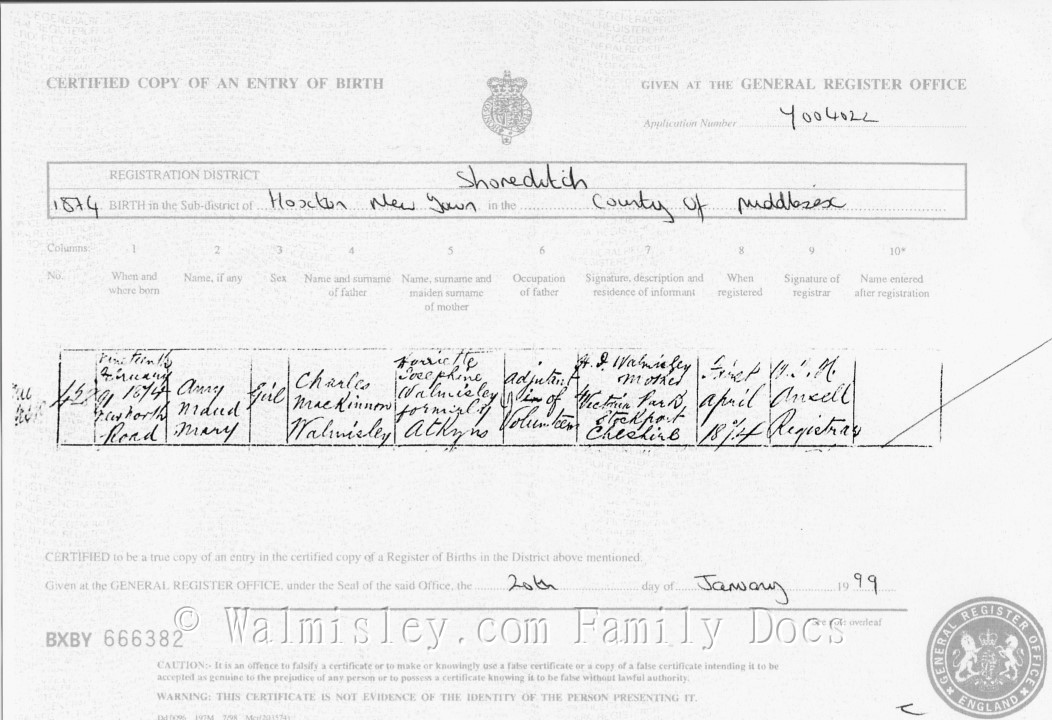 CERTIFIED COPY OF AN ENTRY OF BIRTH
GIVEN AT THE GENERAL REGISTER OFFICE
Application Number Y004022
REGISTRATION DISTRICT Shoreditch
1874 BIRTH in the Sub-district of Hoxton New Town in the County of Middlesex
Columns:- 1 2 3 4 5 6 7 8 9 10*
No. When and where born Name, if any Sex Name and surname of father Name, surname and maiden surname of mother Occupation of father Signature, description and residence of informant When registered Signature of registrar Name entered after registration
February 1874
Road
Amy Maud Mary
Girl
Charles MacKinnon Walmisley
Harriette Josephine Walmisley formerly Atkyns
Adjutant of Volunteers
H. J. Walmisley Mother Victoria Park, Stockport Cheshire
First April 1874
Ansell Registrar
CERTIFIED to be a true copy of an entry in the certified copy of a Register of Births in the District above mentioned.
Given at the GENERAL REGISTER OFFICE, under the Seal of the said Office, the 20th day of January 1999
© Walmisley.com Family Docs
See note overleaf
BXBY 666382
CAUTION:- It is an offence to falsify a certificate or to make or knowingly use a false certificate or a copy of a false certificate intending it to be
accepted as genuine to the prejudice of any person or to possess a certificate knowing it to be false without lawful authority.
WARNING: THIS CERTIFICATE IS NOT EVIDENCE OF THE IDENTITY OF THE PERSON PRESENTING IT.
GENERAL REGISTER OFFICE
ENGLAND